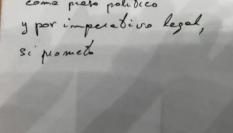 como preso político
y por imperativo legal,
sí prometo